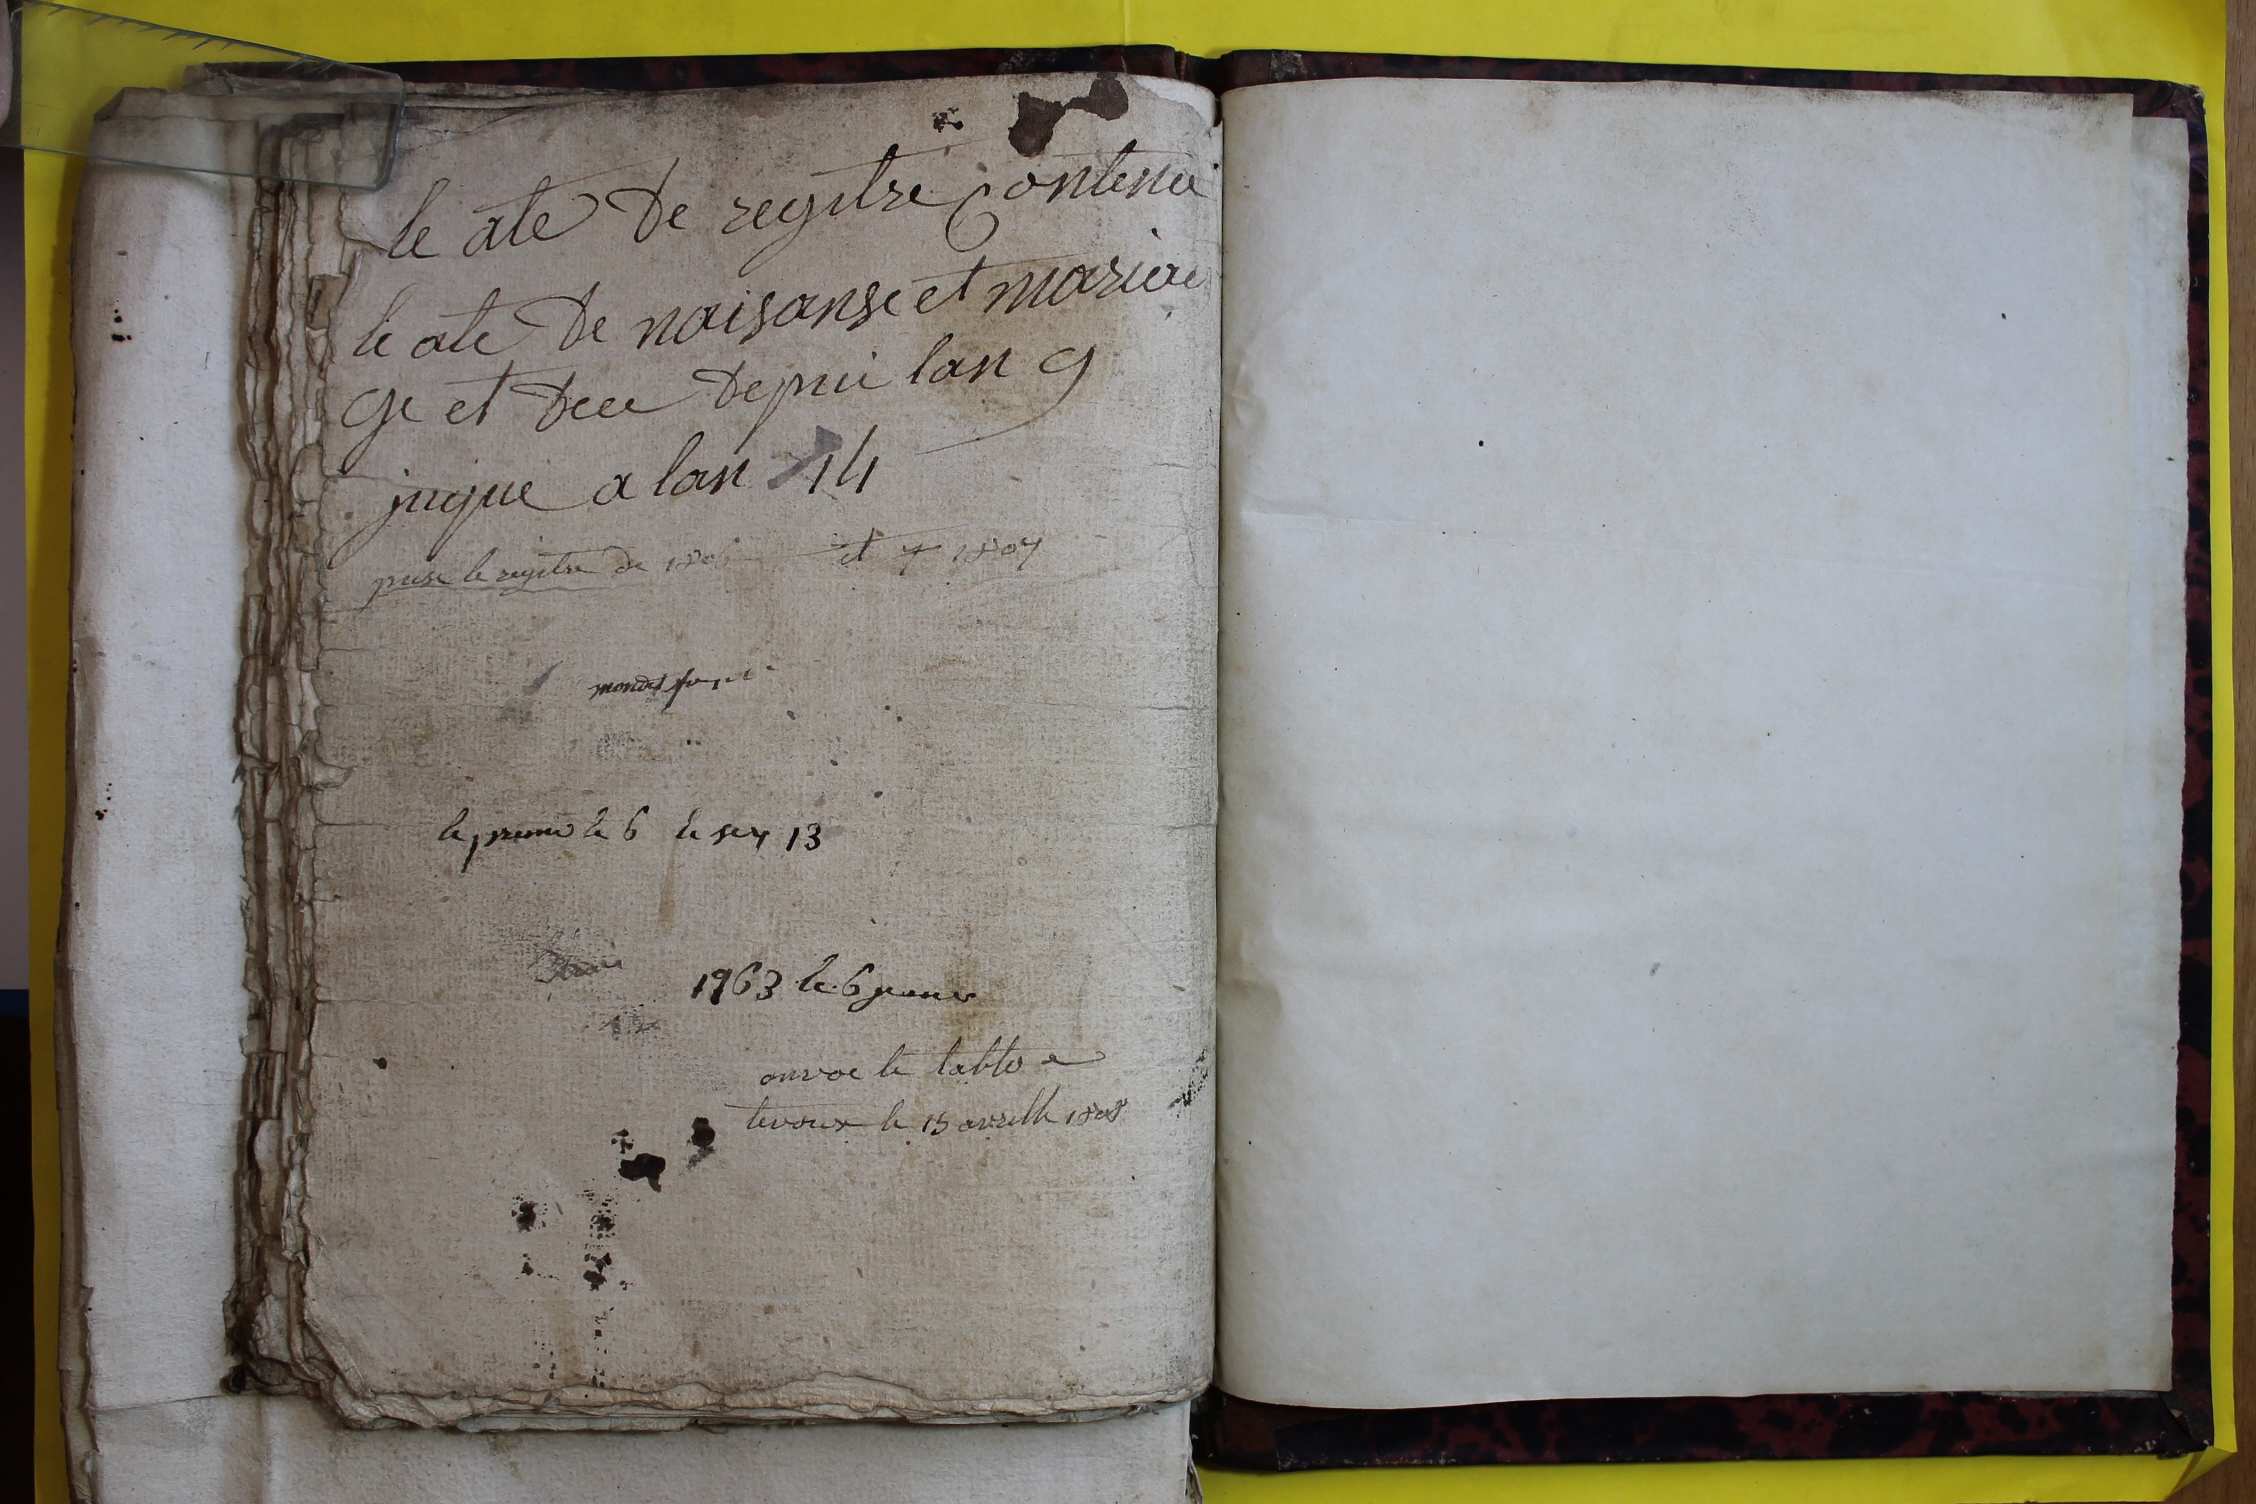 le ate de regitre Contena
le ate de naisanse et maria
ge et dece depui lan 9
juque a lan 14
le registre de 1806 et 1807
le 6 le 13
1763 le 6
onvoe le tablo a
tevoux le 15 avrilh 1808